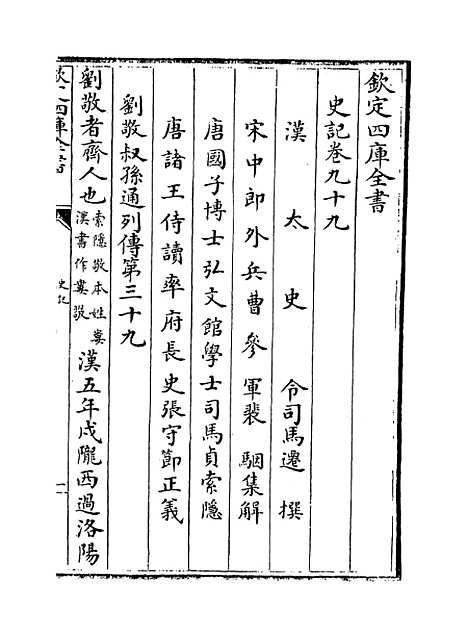 欽定四庫全書
史記卷九十九
漢太史令司馬遷撰
宋中郎外兵曹參軍裴駰集解
唐國子博士弘文館學士司馬貞索隱
唐諸王侍讀率府長史張守節正義
劉敬叔孫通列傳第三十九
劉敬者齊人也索隱敬本姓婁漢書作婁敬漢五年戍隴西過洛陽
欽定四庫全書
史記
一